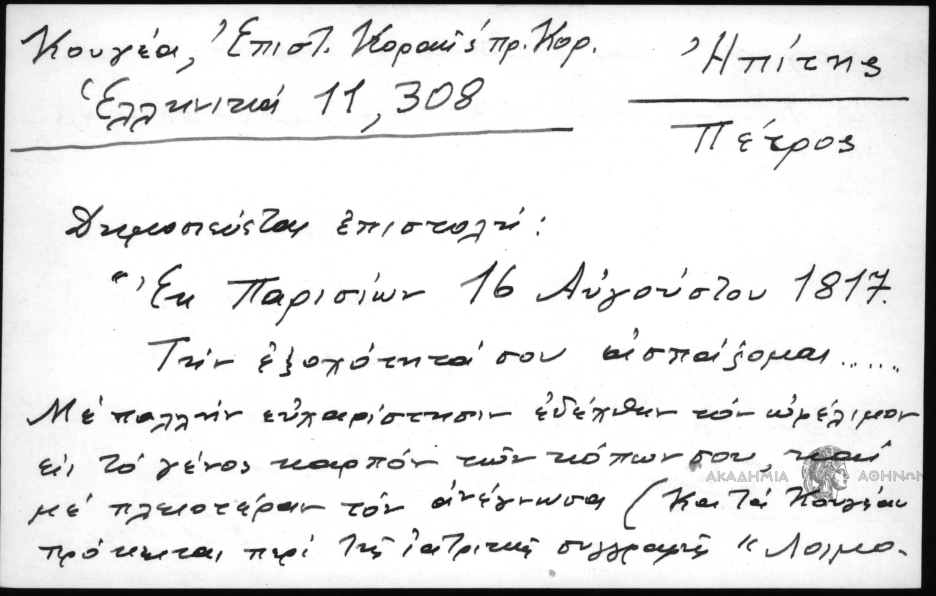 Κουγέα, Ἐπιστ. Κοραῆ πρ. Κορ.
Ἑλληνικά 11, 308
Ἠπίτης
Πέτρος
Δημοσιεύεται ἐπιστολή:
"Ἐκ Παρισίων 16 Αὐγούστου 1817.
Τήν ἐξοχότητά σου ἀσπάζομαι.....
Μέ πολλήν εὐχαρίστησιν ἐδέχθην τόν ὠφέλιμον
εἰς τό γένος καρπόν τῶν κόπων σου, καί
μέ πλειοτέραν τόν ἀνέγνωσα (Κατά Κουγέαν
πρόκειται περί τῆς ἰατρικῆς συγγραφῆς "Λοιμο-
ΑΚΑΔΗΜΙΑ ΑΘΗΝΩΝ